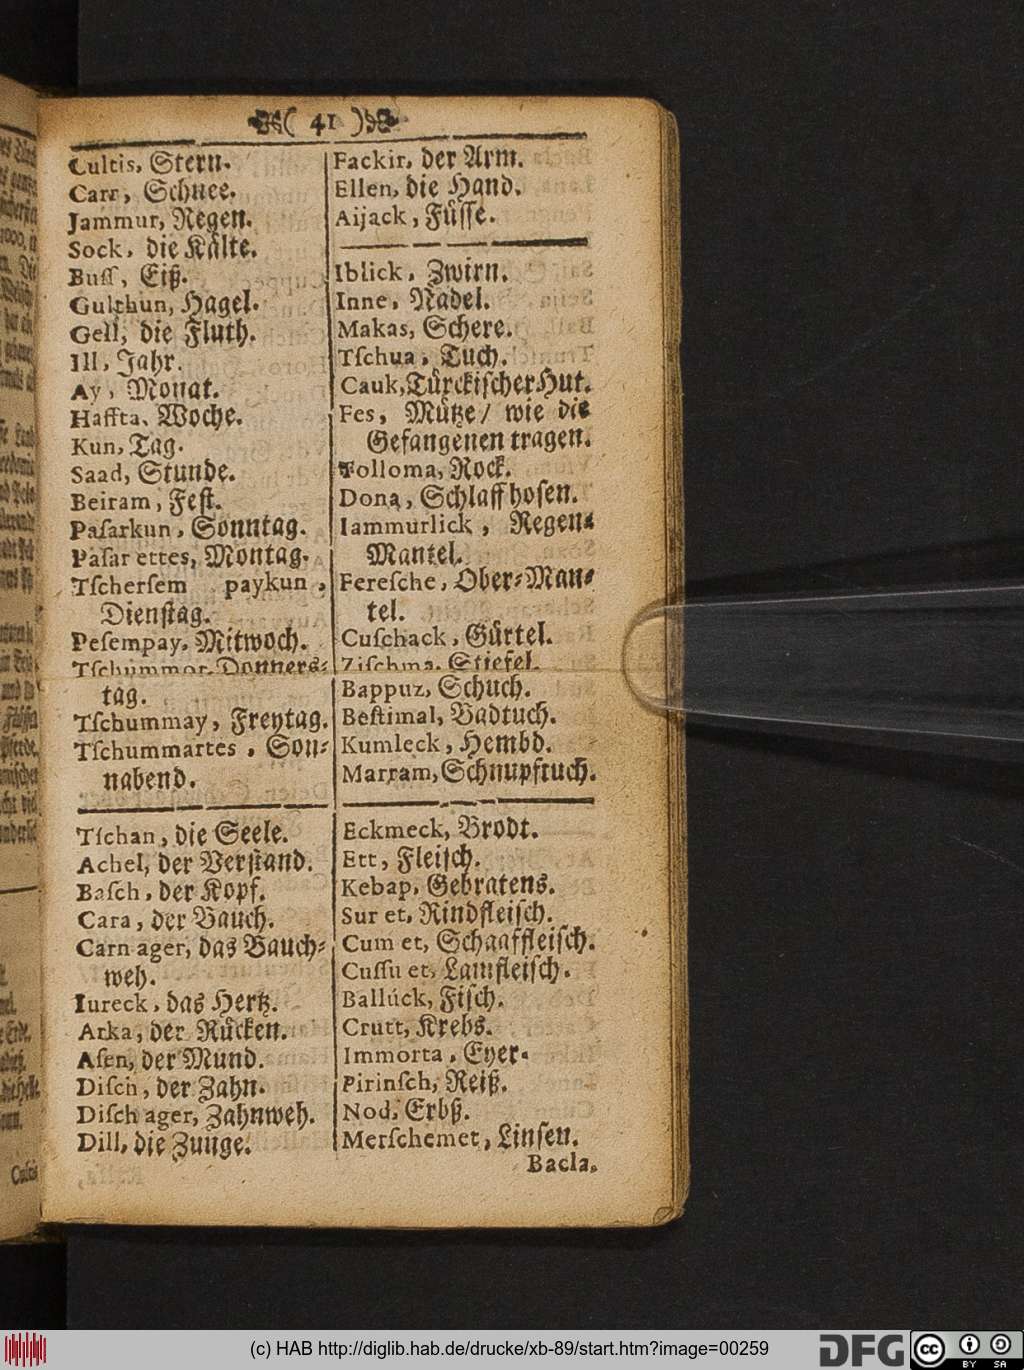 ( 41 )
Cultis, Stern.
Carr, Schnee.
Jammur, Regen.
Sock, die Kälte.
Buſſ, Eiß.
Gulthun, Hagel.
Gell, die Fluth.
Ill, Jahr.
Ay, Monat.
Haffta, Woche.
Kun, Tag.
Saad, Stunde.
Beiram, Feſt.
Paſarkun, Sonntag.
Paſar ettes, Montag.
Tſcherſem paykun,
Dienſtag.
Peſempay, Mitwoch.
Tſchummor, Donners⸗
tag.
Tſchummay, Freytag.
Tſchummartes, Son⸗
nabend.
Tſchan, die Seele.
Achel, der Verſtand.
Baſch, der Kopf.
Cara, der Bauch.
Carn ager, das Bauch⸗
weh.
Iureck, das Hertz.
Arka, der Rücken.
Aſen, der Mund.
Diſch, der Zahn.
Diſch ager, Zahnweh.
Dill, die Zunge.
Fackir, der Arm.
Ellen, die Hand.
Aijack, Füſſe.
Iblick, Zwirn.
Inne, Nadel.
Makas, Schere.
Tſchua, Tuch.
Cauk, Türckiſcher Hut.
Fes, Mütze/ wie die
Gefangenen tragen.
Tolloma, Rock.
Dona, Schlaffhoſen.
Iammurlick, Regen⸗
Mantel.
Fereſche, Ober⸗Man⸗
tel.
Cuſchack, Gürtel.
Ziſchma, Stiefel.
Bappuz, Schuch.
Beſtimal, Badtuch.
Kumleck, Hembd.
Marram, Schnupftuch.
Eckmeck, Brodt.
Ett, Fleiſch.
Kebap, Gebratens.
Sur et, Rindfleiſch.
Cum et, Schaaffleiſch.
Cuſſu et, Lamfleiſch.
Ballúck, Fiſch.
Crutt, Krebs.
Immorta, Eyer.
Pirinſch, Reiß.
Nod, Erbß.
Merſchemet, Linſen.
Bacla,
(c) HAB http://diglib.hab.de/drucke/xb-89/start.htm?image=00259
DFG
cc BY SA